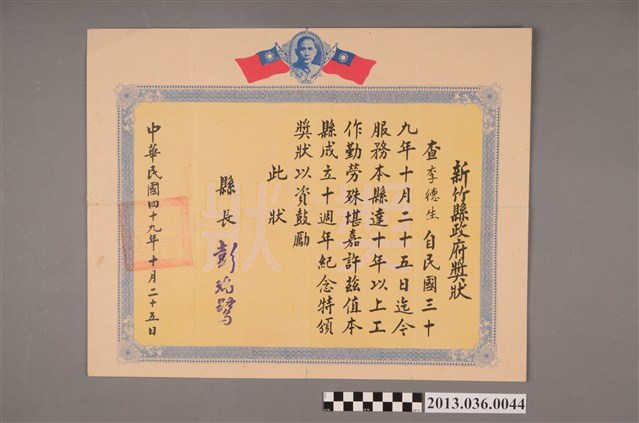 新竹縣政府獎狀
查李德生自民國三十
九年十月二十五日迄今
服務本縣達十年以上工
作勤勞殊堪嘉許茲值本
縣成立十週年紀念特頒
獎狀以資鼓勵
此狀
縣長彭瑞鷺
中華民國四十九年十月二十五日
獎狀
2013.036.0044